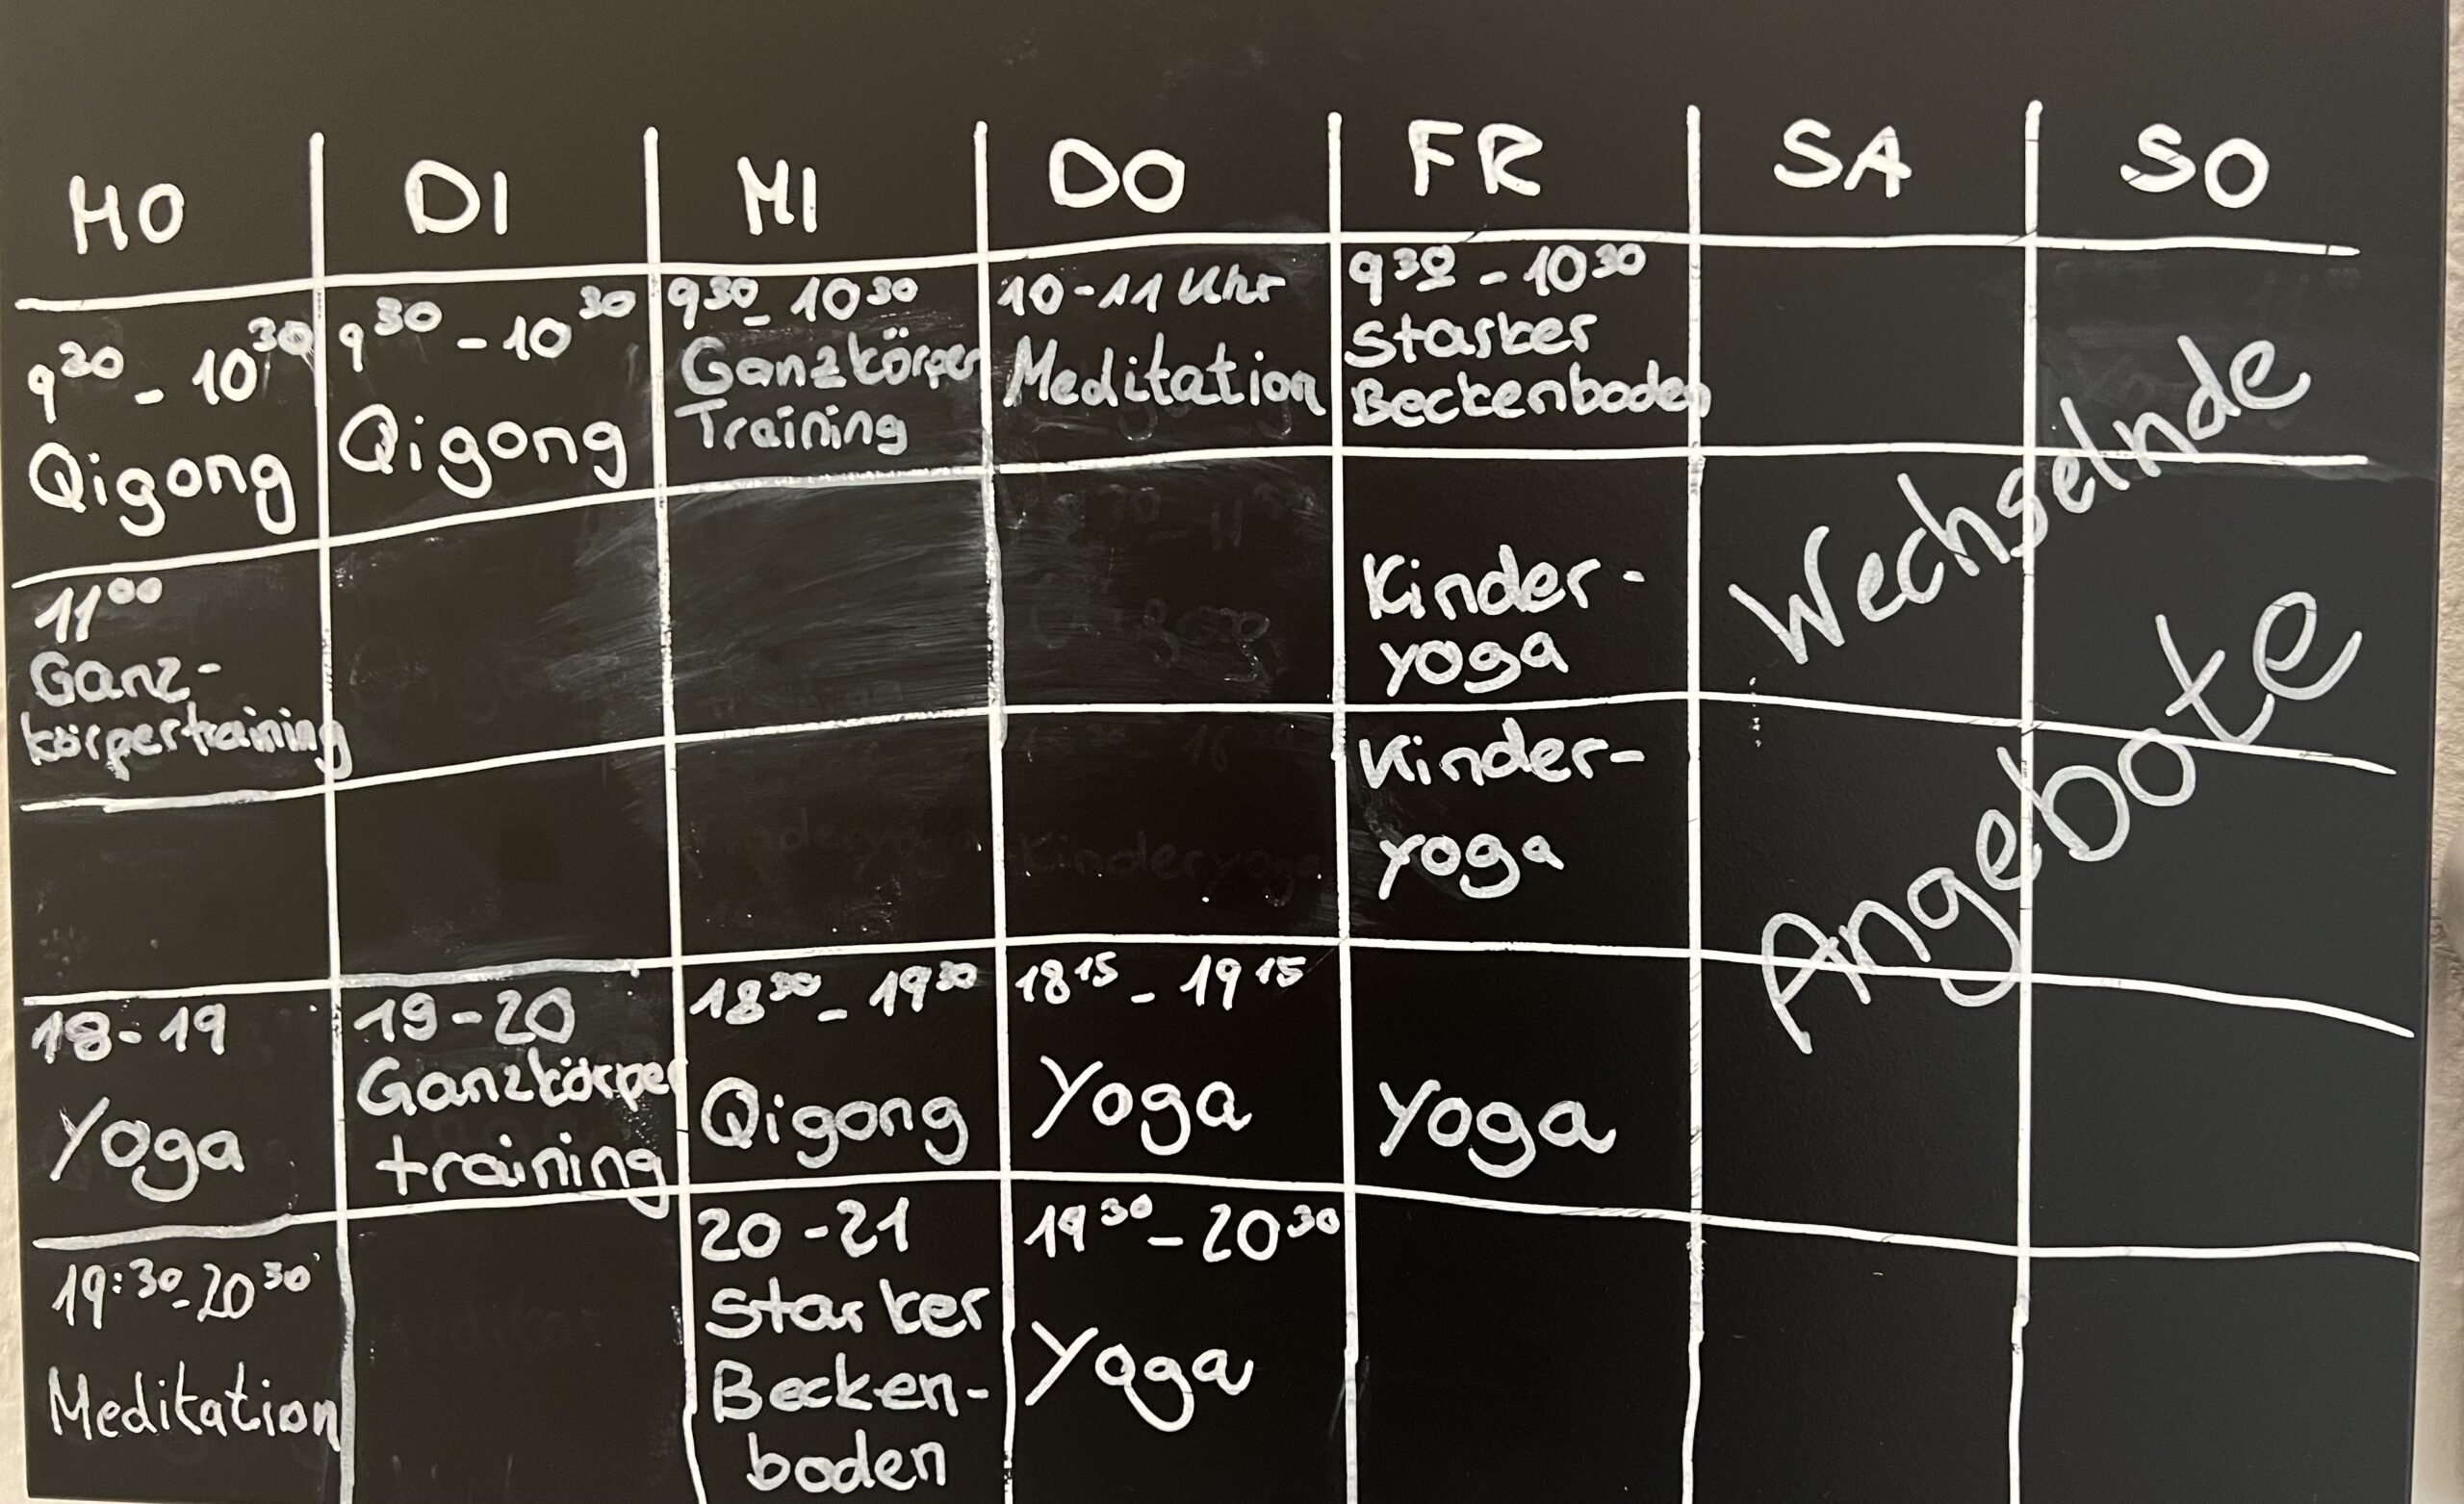 MO DI MI DO FR SA SO
9³⁰ - 10³⁰
Qigong
9³⁰ - 10³⁰
Qigong
9³⁰ - 10³⁰
Ganzkörper
Training
10-11 Uhr
Meditation
9³⁰ - 10³⁰
Starker
Beckenboden
11⁰⁰
Ganz-
körpertraining
Kinder-
yoga
Kinder-
yoga
Wechselnde
Angebote
18-19
Yoga
19-20
Ganzkörper
training
18³⁰ - 19³⁰
Qigong
18¹⁵ - 19¹⁵
Yoga
Yoga
19:³⁰-20³⁰
Meditation
20-21
Starker
Becken-
boden
19³⁰ - 20³⁰
Yoga